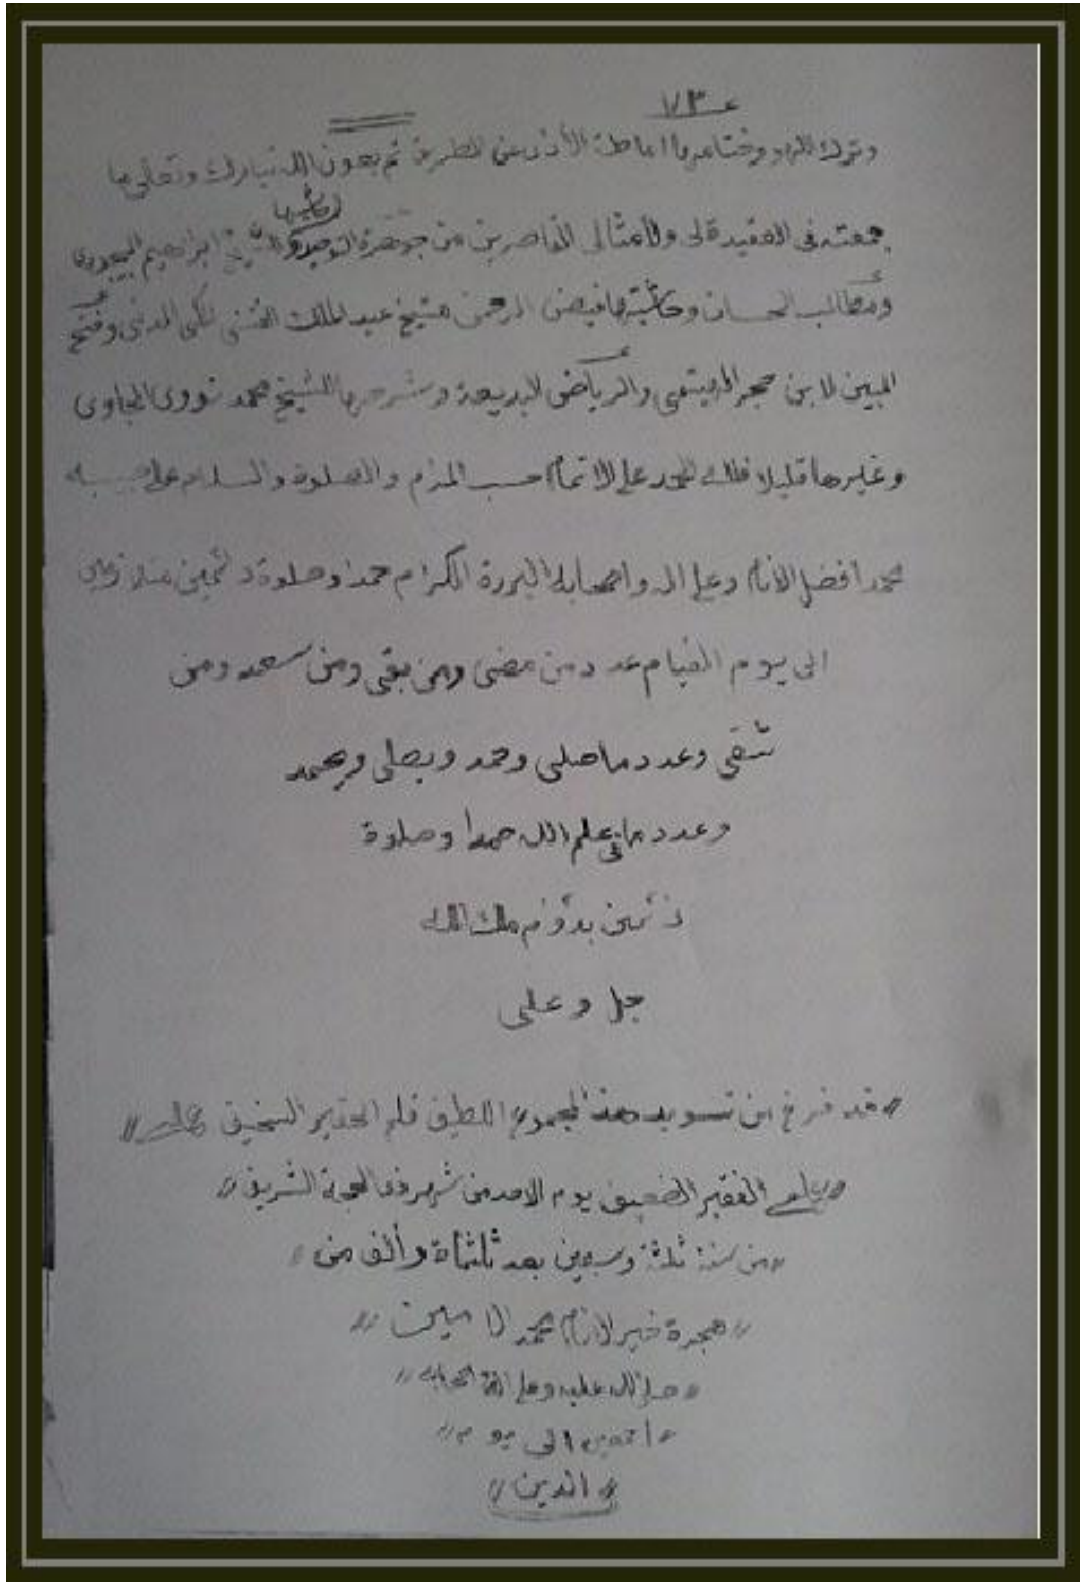 ١٧٣
وترك اللهو وختامها اماطة الأذى عن الطريق تم بعون الله تبارك وتعالى ما
لحاشيتها
جمعته فى العقيدة لى ولأمثالى القاصرين من جوهرة التوحيد الشيخ ابراهيم البيجورى
ومطالب الحسان وحاشيتها فيض الرحمن شيخ عبد الملك الفتنى المكى المدنى وفتح
المبين لابن حجر الهيتمى والرياض البديعة وشرحها للشيخ محمد نووى الجاوى
وغيرها قليلا فلله الحمد على الاتمام حسب المرام والصلوة والسلام على حبيبه
محمد افضل الانام وعلى اله واصحابه البررة الكرام حمدا وصلوة دائمين متلازمين
الى يوم القيام عدد من مضى ومن بقى ومن سعد ومن
شقى وعدد ما صلى وحمد ويصلى ويحمد
وعدد ما فى علم الله حمدا وصلوة
دائمين بدوام ملك الله
جل وعلى
〃 قد فرغ من تسويد هذا المجموع اللطيف قلم الحقير السخيف 〃
〃 الفقير الضعيف يوم الاحد من شهر ذى الحجة الشريف 〃
〃 من سنة ثلثة وسبعين بعد ثلثمأة وألف من 〃
〃 هجرة خير الانام محمد الامين 〃
〃 صلى الله عليه وعلى اله واصحابه 〃
〃 اجمعين الى يوم 〃
〃 الدين 〃